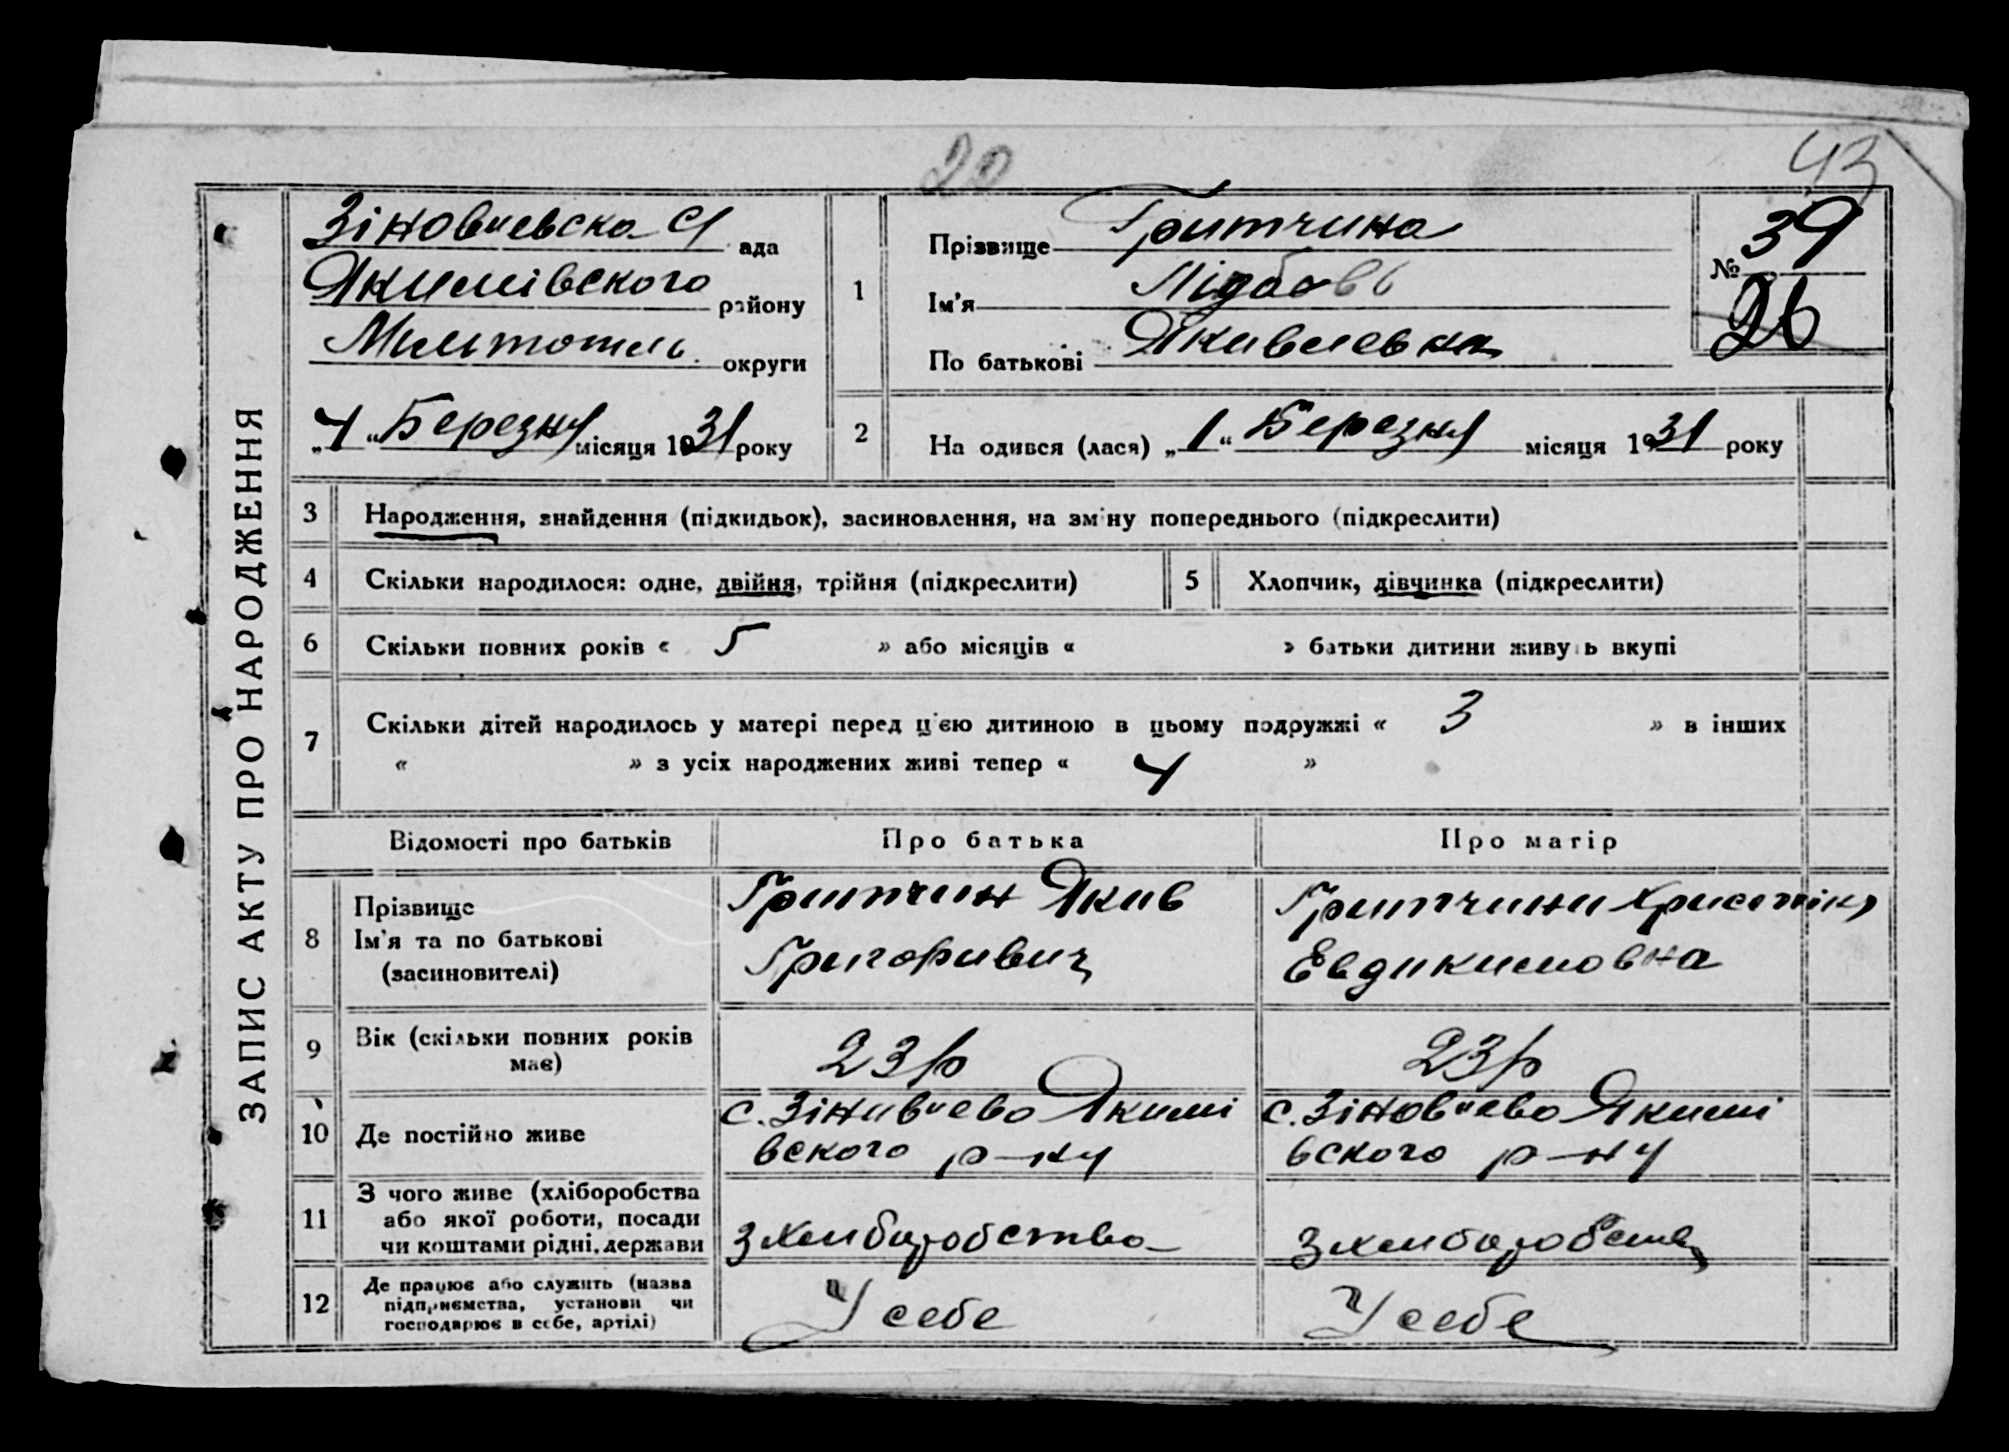 20
43
ЗАПИС АКТУ ПРО НАРОДЖЕННЯ
Зіновиевска С/ ада
Якимівского району
Мелитопиль округи
„4“ Березня місяця 1931 року
1
Прізвище Гритчина
Ім'я
По батькові Якивлевна
№ 39
26
2
На одився (лася) „1“ Березня місяця 1931 року
3 Народження, знайдення (підкидьок), засиновлення, на зміну попереднього (підкреслити)
4 Скільки народилося: одне, двійня, трійня (підкреслити)
5 Хлопчик, дівчинка (підкреслити)
6 Скільки повних років « 5 » або місяців « » батьки дитини живуть вкупі
7 Скільки дітей народилось у матері перед цією дитиною в цьому подружжі « 3 » в інших
« » з усіх народжених живі тепер « 4 »
Відомості про батьків Про батька Про матір
8 Прізвище
Ім'я та по батькові
(засиновителі)
Гритчин Якив
Григоривич
Гритчини Христинa
Евдикимовна
9 Вік (скільки повних років
має)
23 р
23 р
10 Де постійно живе
с. Зінивиево Якимі
вского р-ну
с. Зіновиево Якимі
вского р-ну
11 З чого живе (хліборобства
або якої роботи, посади
чи коштами рідні, держави
З хлибиробства
З хлибиробства
12 Де працює або служить (назва
підприємства, установи чи
господарює в себе, артілі)
У себе
У себе